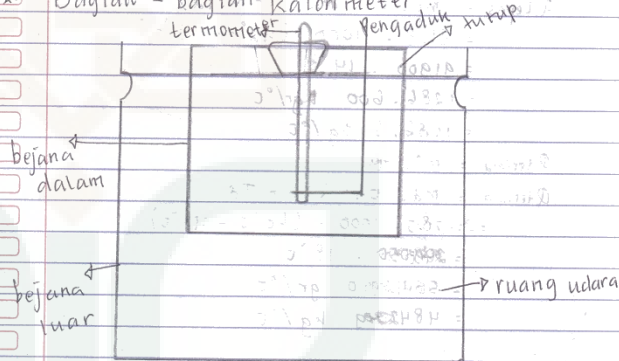 Bagian - bagian Kalorimeter
termometer
pengaduk
tutup
bejana
dalam
bejana
luar
ruang udara